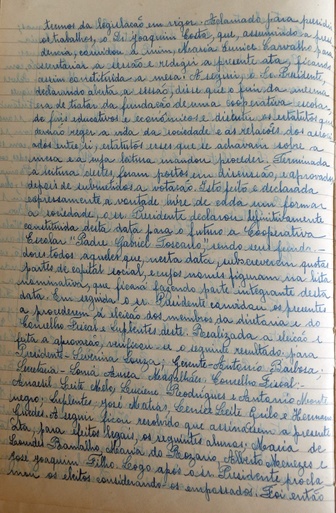 termos da legislação em vigor. Aclamado para presi-
os trabalhos, o Dr. Joaquim Costa, que, assumindo a presi-
dencia, convidou a mim, Maria Eunice Carvalho para
secretariar a sessão e redigir a presente ata, ficando
assim constituida a mesa. A seguir, o Sr. Presidente,
declarando aberta a sessão, disse que o fim da mesma
era de tratar da fundação de uma cooperativa escolar
de fins educativos e econômicos e discutir os estatutos que
deverão reger a vida da sociedade e as relações dos asso-
ciados entre si, estatutos esses que se achavam sobre a
mesa e cuja leitura mandou proceder. Terminada
a leitura destes, foram postos em discussão, e aprovados
depois de submetidos a votação. Isto feito e declarada
expressamente a vontade livre de cada um formar
a sociedade, o sr. Presidente declarou definitivamente
constituida desta data para o futuro a Cooperativa
Escolar "Padre Gabriel Toscano", sendo seus funda-
dores todos aqueles que, nesta data, subscrevem quotas
partes de capital social, e cujos nomes figuram na lista
nominativa, que ficará fazendo parte integrante desta
data. Em seguida, o sr. Presidente convidou os presentes
a procederem á eleição dos membros da diretoria e do
Conselho Fiscal e suplentes deste. Realizada a eleição e
feita a apuração, verificou-se o seguinte resultado: para
Presidente - Severina Souza; Gerente - Antonio Barbosa;
Secretaria - Magalhães. Conselho Fiscal:-
Leite Melo, Luciene Rodrigues e Antonio Monte
negro; Suplentes José Matias, Leite e Hermano
Guedes. A seguir ficou resolvido que assinassem a presente
Ata, para efeitos legais, os seguintes alunos: Maria de
Lourdes Ramalho, Maria do Rozario, Alberto Menezes e
José Joaquim Filho. Logo após o sr. Presidente procla
mou os eleitos considerando os empossados. Foi então